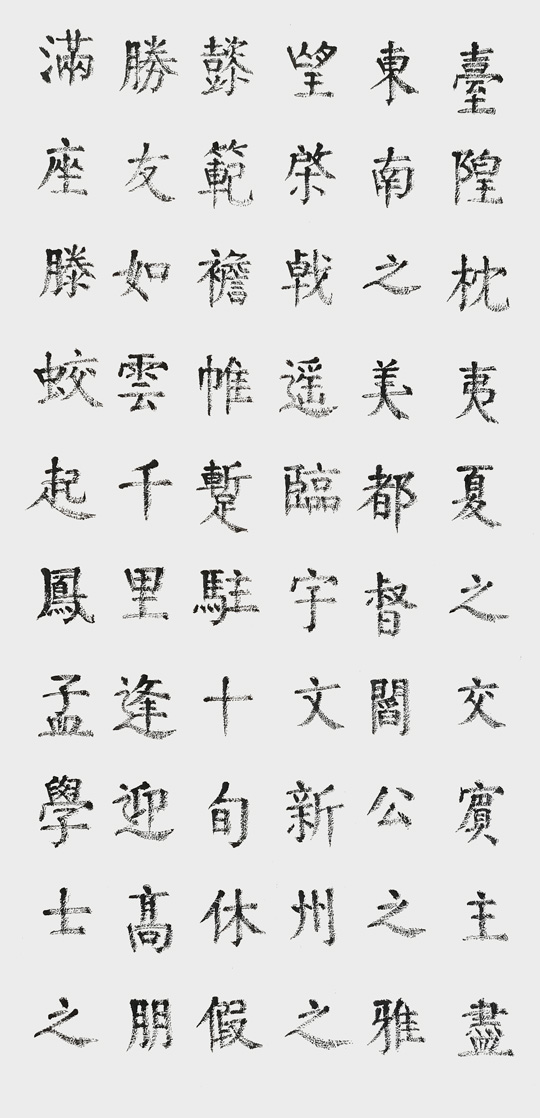 臺隍枕夷夏之交賓主盡
東南之美都督閻公之雅
望棨戟遥臨宇文新州之
懿範襜帷蹔駐十旬休假
勝友如雲千里逢迎高朋
滿座騰蛟起鳳孟學士之